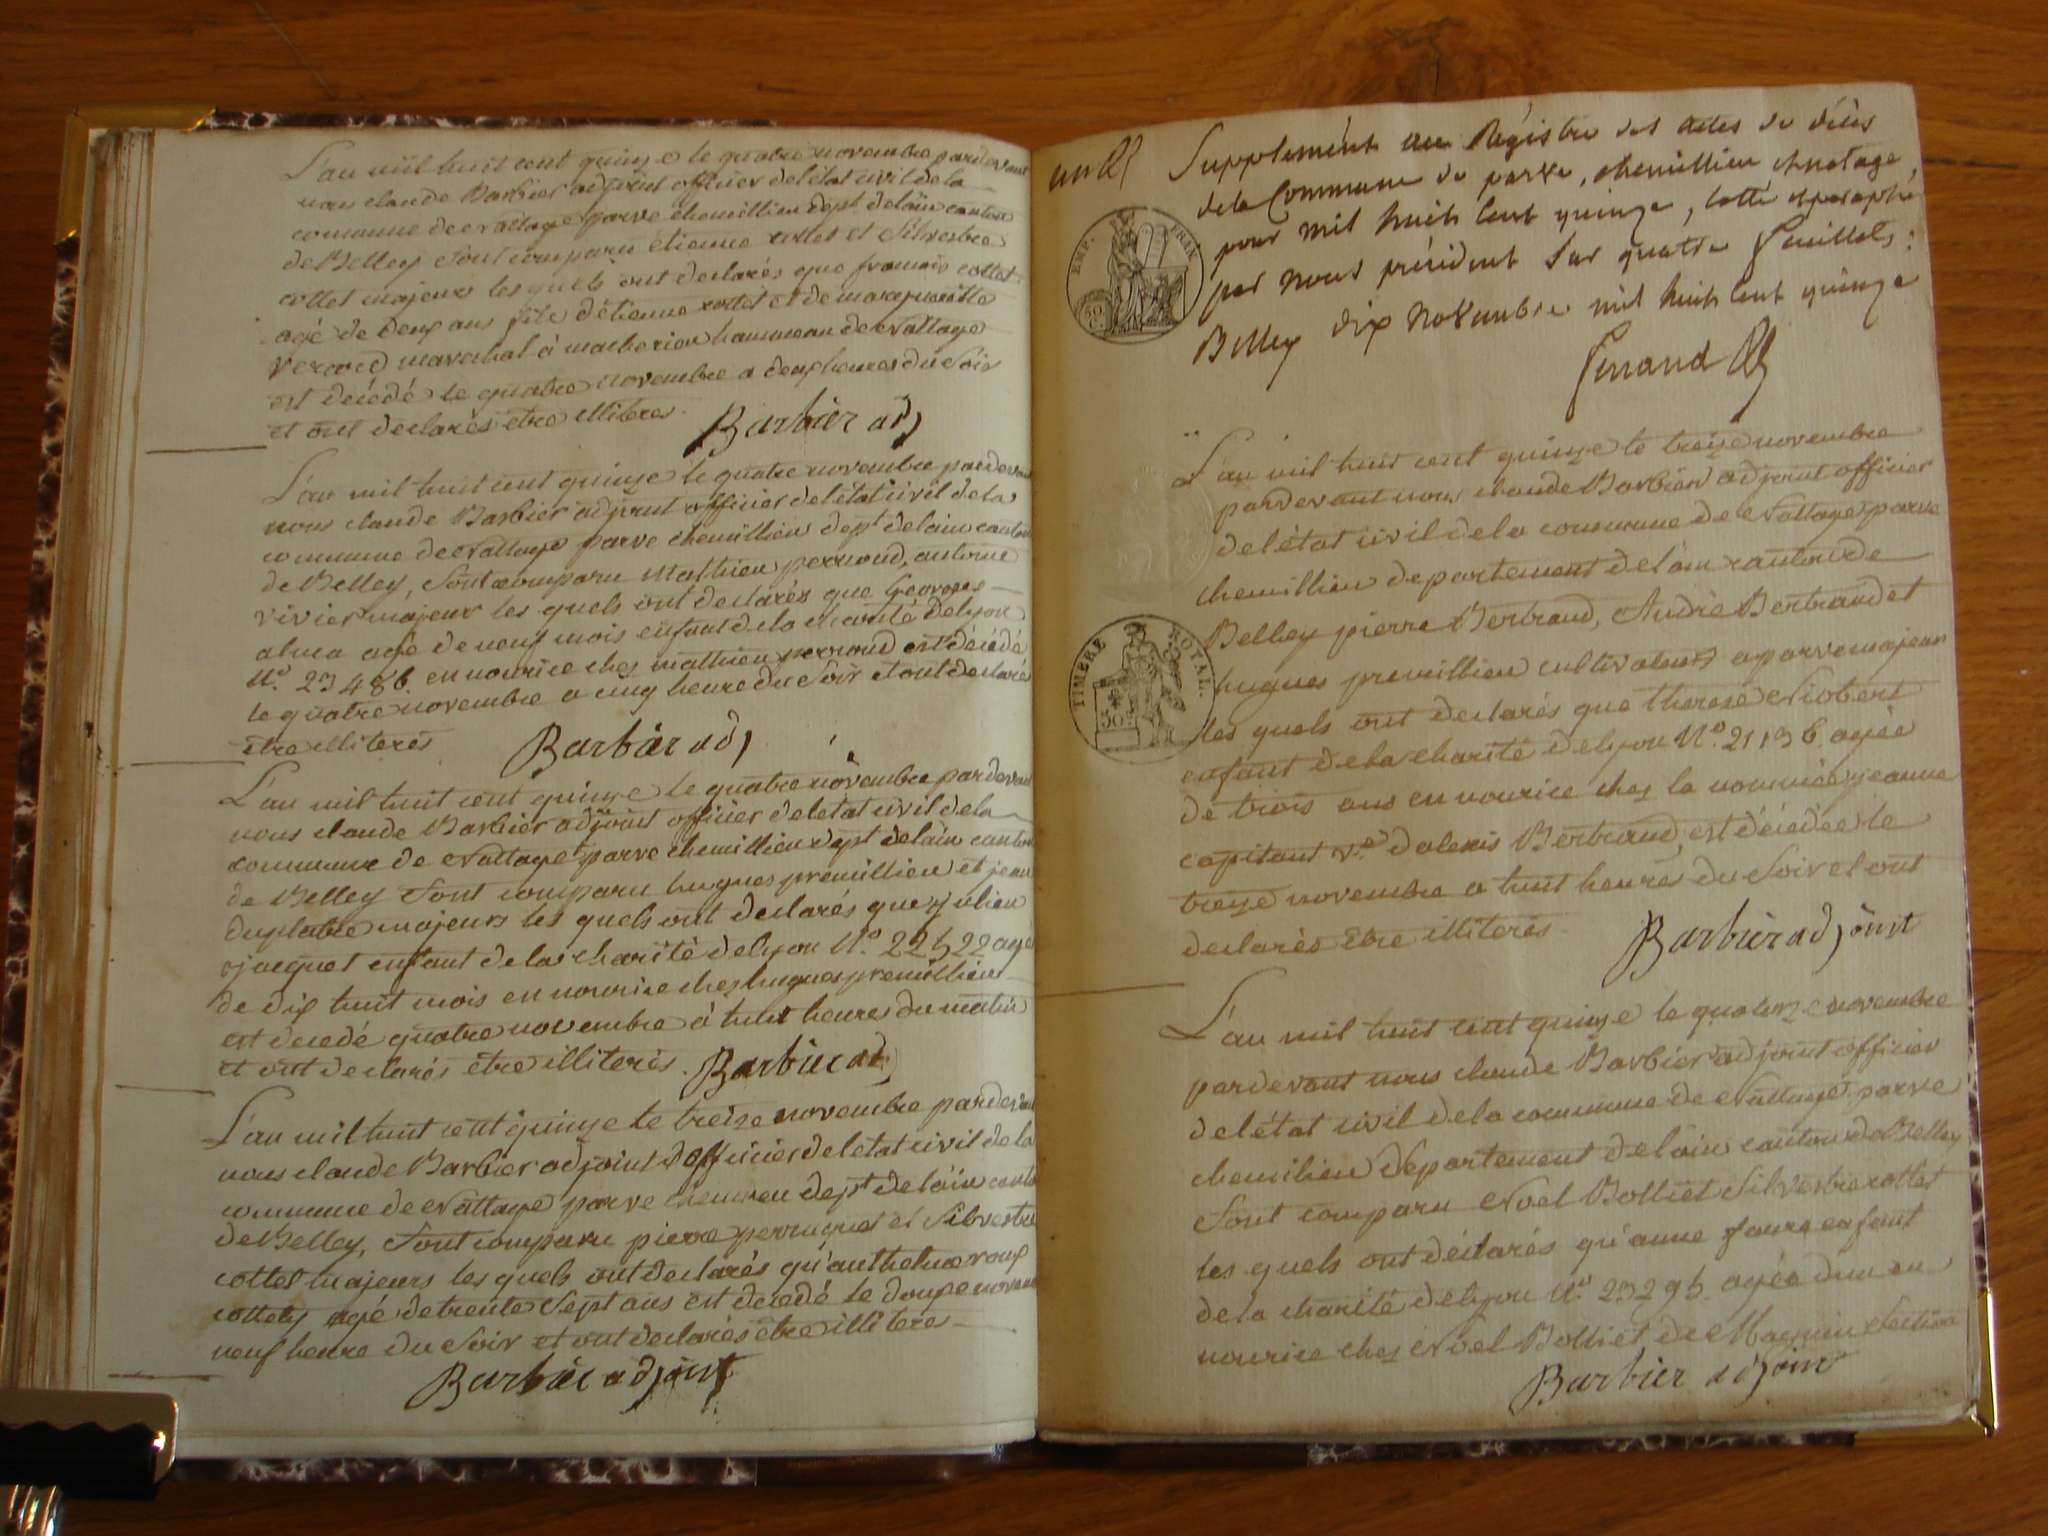 L'an mil huit cent quinze le quatre novembre pardevant
nous claude Barbier adjoint officier delétat civil dela
commune de Nattage parve chemillieu dept delain canton
de Belley sont comparu étienne cottet et Silvestre
cottet majeurs les quels ont declarés que francois cottet
agé de deux ans fils détienne cottet et de marie
marechal à hammeau de Nattage
est décédé le quatre novembre a deux heures du Soir
et ont declarés etre illiteres.
Barbier adj
L'an mil huit cent quinze le quatre novembre pardevant
nous claude Barbier adjoint officier delétat civil dela
commune de Nattage parve chemillieu dept delain canton
de Belley, sont comparu Mathieu perroud, antoine
vivier majeur les quels ont declarés que Georges
agé de neuf mois enfant dela charité delyon
N.o 23486. en nourice chez mathieu perroud est décédé
le quatre novembre a cinq heure du Soir et ont declarés
être illiterés
Barbier adj
L'an mil huit cent quinze le quatre novembre pardevant
nous claude Barbier adjoint officier delétat civil dela
commune de Nattage parve chemillieu dept delain canton
de Belley sont comparu hugues premillieu et jean
duplatre majeurs les quels ont declarés que julien
jacquet enfant dela charité delyon N.o 22522 agé
de dix huit mois en nourice chez hugues premillieu
est decedé quatre novembre à huit heures du matin
et ont declarés être illiterés. Barbier adj
L'an mil huit cent quinze le treize novembre pardevant
nous claude Barbier adjoint officier delétat civil dela
commune de Nattage parve dept delain canton
de Belley, sont comparu pierre perruquet et Silvestre
cottet majeurs les quels ont declarés qu'anthelme roux
agé de trente Sept ans est decedé le douze novembre
neuf heure du Soir et ont declarés être illitere
Barbier adjoint
un
Supplément au Régistre des actes de décès
dela Commune de parve, chemillieu et natage
pour mil huit cent quinze, cotté et paraphé
par nous président sur quatre feuillets:
Belley dix novembre mil huit cent quinze
EMP. FRAN.
L'an mil huit cent quinze le treize novembre
pardevant nous claude Barbier adjoint officier
delétat civil dela commune de Nattage parve
chemillieu departement delain canton de
Belley pierre Bertrand, André Bertrand et
hugues premillieu cultivateurs a parve majeurs
TIMBRE ROYAL.
les quels ont declarés que therese Niobert
enfant dela charité delyon N.o 21136. agée
de trois ans en nourice chez la nommée jeanne
capitant v.e dalexis Bertrand, est décédée le
treize novembre a huit heures du Soir et ont
declarés être illiterés.
Barbier adjoint
L'an mil huit cent quinze le quatorze novembre
pardevant nous claude Barbier adjoint officier
delétat civil dela commune de Nattage parve
chemilieu departement delain canton de Belley
sont comparu Noel Bolliet Silvestre cottet
les quels ont déclarés qu'anne faure enfant
dela charité delyon N.o 23295. agée dun an
nourice chez Noel Bolliet de
Barbier adjoin